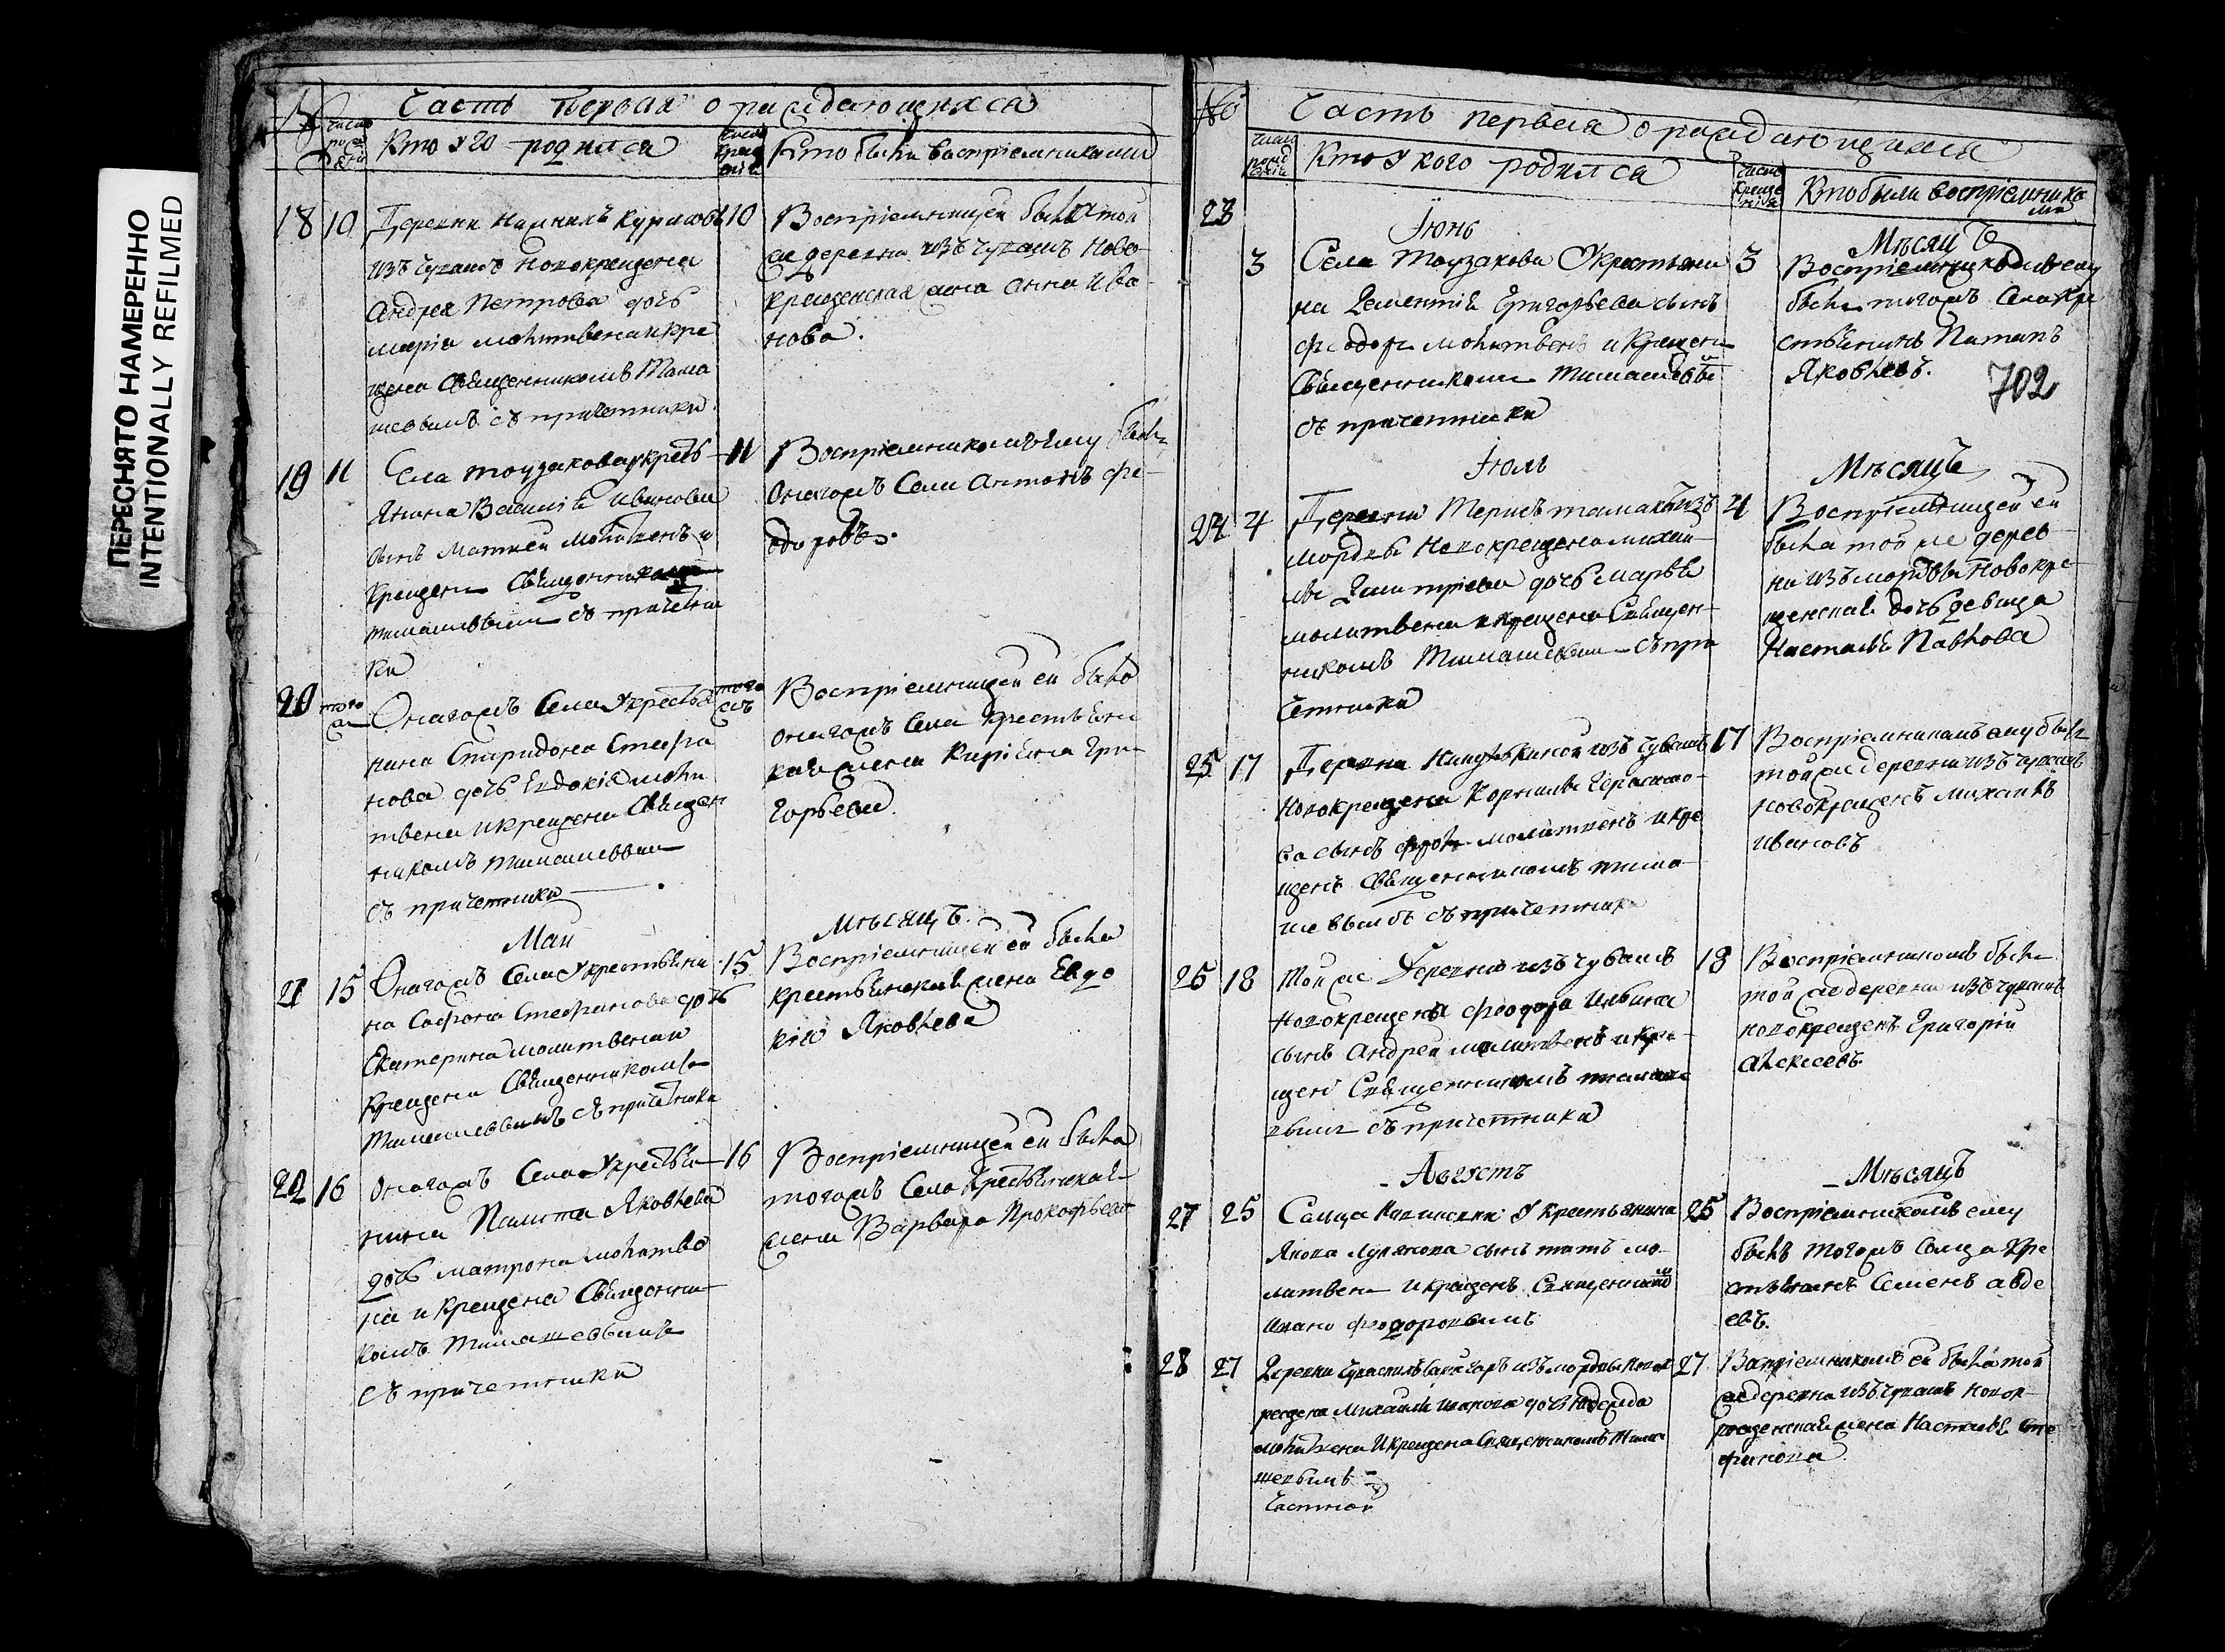 ПЕРЕСНЯТО НАМЕРЕННО
INTENTIONALLY REFILMED
Часть первая о раждающихся
№
число рождения
Кто у кого родился
число крещения
Кто были воспріемниками
18 10 Деревни
изъ чувашъ новокрещена
Андрея Петрова дочь
Марія молитвена и кре
щена священникомъ Тима
шевымъ съ причетники
10 Воспріемницей была той
же деревни изъ чувашъ ново
крещенская жена Анна Ива
нова.
19 11 Села Тоузакова у кресть
янина Василія Иванова
сынъ Матфей молитвенъ и
крещенъ священникомъ
Тимашевымъ съ причетни
ки
11 Воспріемникомъ ему былъ
онагожъ села Антонъ Фе
одоровъ.
20 того ж Онагожъ села у крестья
нина Спиридона Стефа
нова дочь Евдокія моли
твена и крещена священ
никомъ Тимашевымъ
съ причетники
того жъ Воспріемницей ей была
онагожъ села крестьянс
кая жена Гри
горьева
Май
Мѣсяцъ.
21 15 Онагожъ села у крестьяни
на Сафона Стефанова дочь
Екатерина молитвена и
крещена священникомъ
Тимашевымъ съ причетники
15 Воспріемницей ей была
крестьянская жена Евдо
кія Яковлева
22 16 Онагожъ села у крестья
нина Яковлева
дочь Матрона молитве
на и крещена священни
комъ Тимашевымъ
съ причетники
16 Воспріемницей ей была
тогожъ села крестьянская
жена Варвара Прокофьева
№
Часть первая о раждающихся
число рожденія
Кто у кого родился
число крещенія
Кто были воспріемника
ми
702
Іюнь
Мѣсяцъ
23 3 Села Тоузакова у крестьяни
на Дементія Григорьева сынъ
Феодоръ молитвенъ и крещенъ
священникомъ Тимашевымъ
съ причетники
3 Воспріемникомъ ему
былъ тогожъ села кре
стьянинъ Потапъ
Яковлевъ.
Іюль
Мѣсяцъ
24 4 Деревни изъ
мордвы новокрещена Михаи
ла Димитріева дочь Марѳа
молитвена и крещена священ
никомъ Тимашевымъ съ при
четники
4 Воспріемницей ей
была той же дерев
ни изъ мордвы новокре
щенская дочь девица
Настасья Павлова
25 17 Деревни изъ чувашъ
новокрещена Корнила Герасимо
ва сынъ молитвенъ и кре
щенъ священникомъ Тима
шевымъ съ причетники
17 Воспріемникомъ ему былъ
той же деревни изъ чувашъ
новокрещенъ Михаилъ
Ивановъ
26 18 Той же деревни изъ чувашъ
новокрещена Феодора Ильина
сынъ Андрей молитвенъ и кре
щенъ священникомъ Тимаше
вымъ съ причетники
18 Воспріемникомъ былъ
той же деревни изъ чувашъ
новокрещенъ Григорій
Алексеевъ
Августъ
Мѣсяцъ
27 25 Сельца у крестьянина
Якова сынъ мо
литвенъ и крещенъ священникомъ
Феодоровымъ
25 Воспріемникомъ ему
былъ тогожъ сельца кре
стьянинъ Семенъ Авде
евъ.
28 27 Деревни изъ мордвы новок
рещена Михаила дочь Надежда
молитвена и крещена священникомъ Тима
шевымъ
27 Воспріемникомъ ей была той
же деревни изъ чувашъ новок
рещенская жена Настасья Сте
фанова